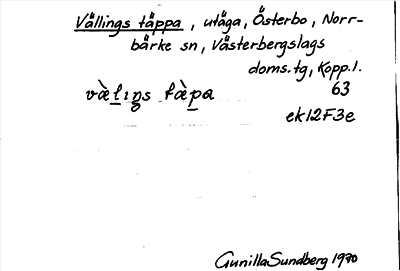 Vällings täppa, utäga, Österbo, Norr-
bärke sn, Västerbergslags
doms.tg, Kopp.l.
vὰ̀lıŋs tæ̀pa 63
ek12F3e
Gunilla Sundberg 1970